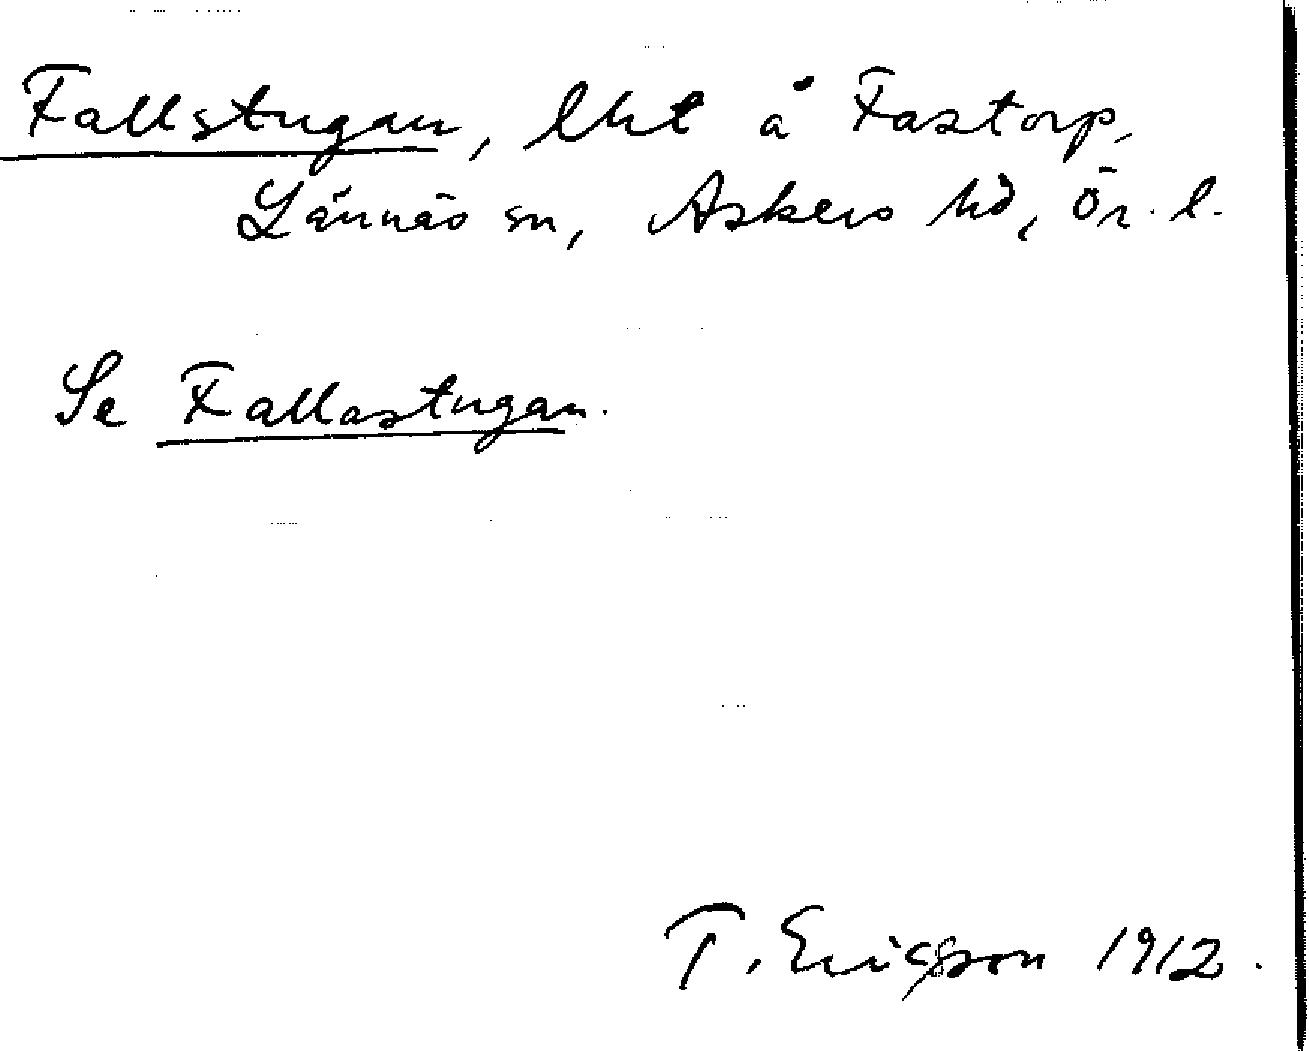 Fallstugan, lht å Fastorp,
Lännäs sn, Askers hd, Ör. l.
Se Fallastugan.
T. Ericsson 1912.